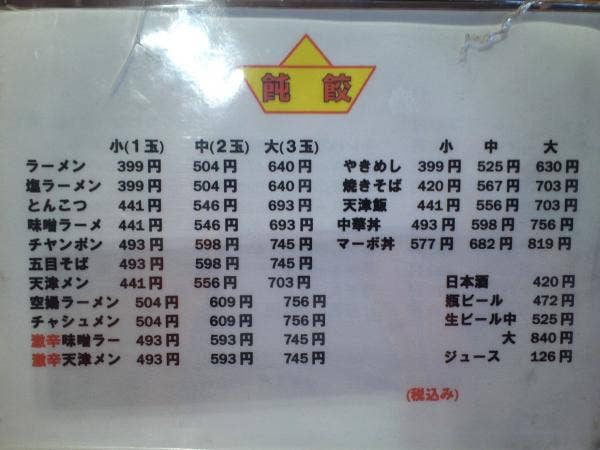 飩餃
小(1玉) 中(2玉) 大(3玉)
ラーメン 399円 504円 640円
塩ラーメン 399円 504円 640円
とんこつ 441円 546円 693円
味噌ラーメ 441円 546円 693円
チャンポン 493円 598円 745円
五目そば 493円 598円 745円
天津メン 441円 556円 703円
空揚ラーメン 504円 609円 756円
チャシュメン 504円 609円 756円
激辛味噌ラー 493円 593円 745円
激辛天津メン 493円 593円 745円
小 中 大
やきめし 399円 525円 630円
焼きそば 420円 567円 703円
天津飯 441円 556円 703円
中華丼 493円 598円 756円
マーボ丼 577円 682円 819円
日本酒 420円
瓶ビール 472円
生ビール中 525円
大 840円
ジュース 126円
(税込み)